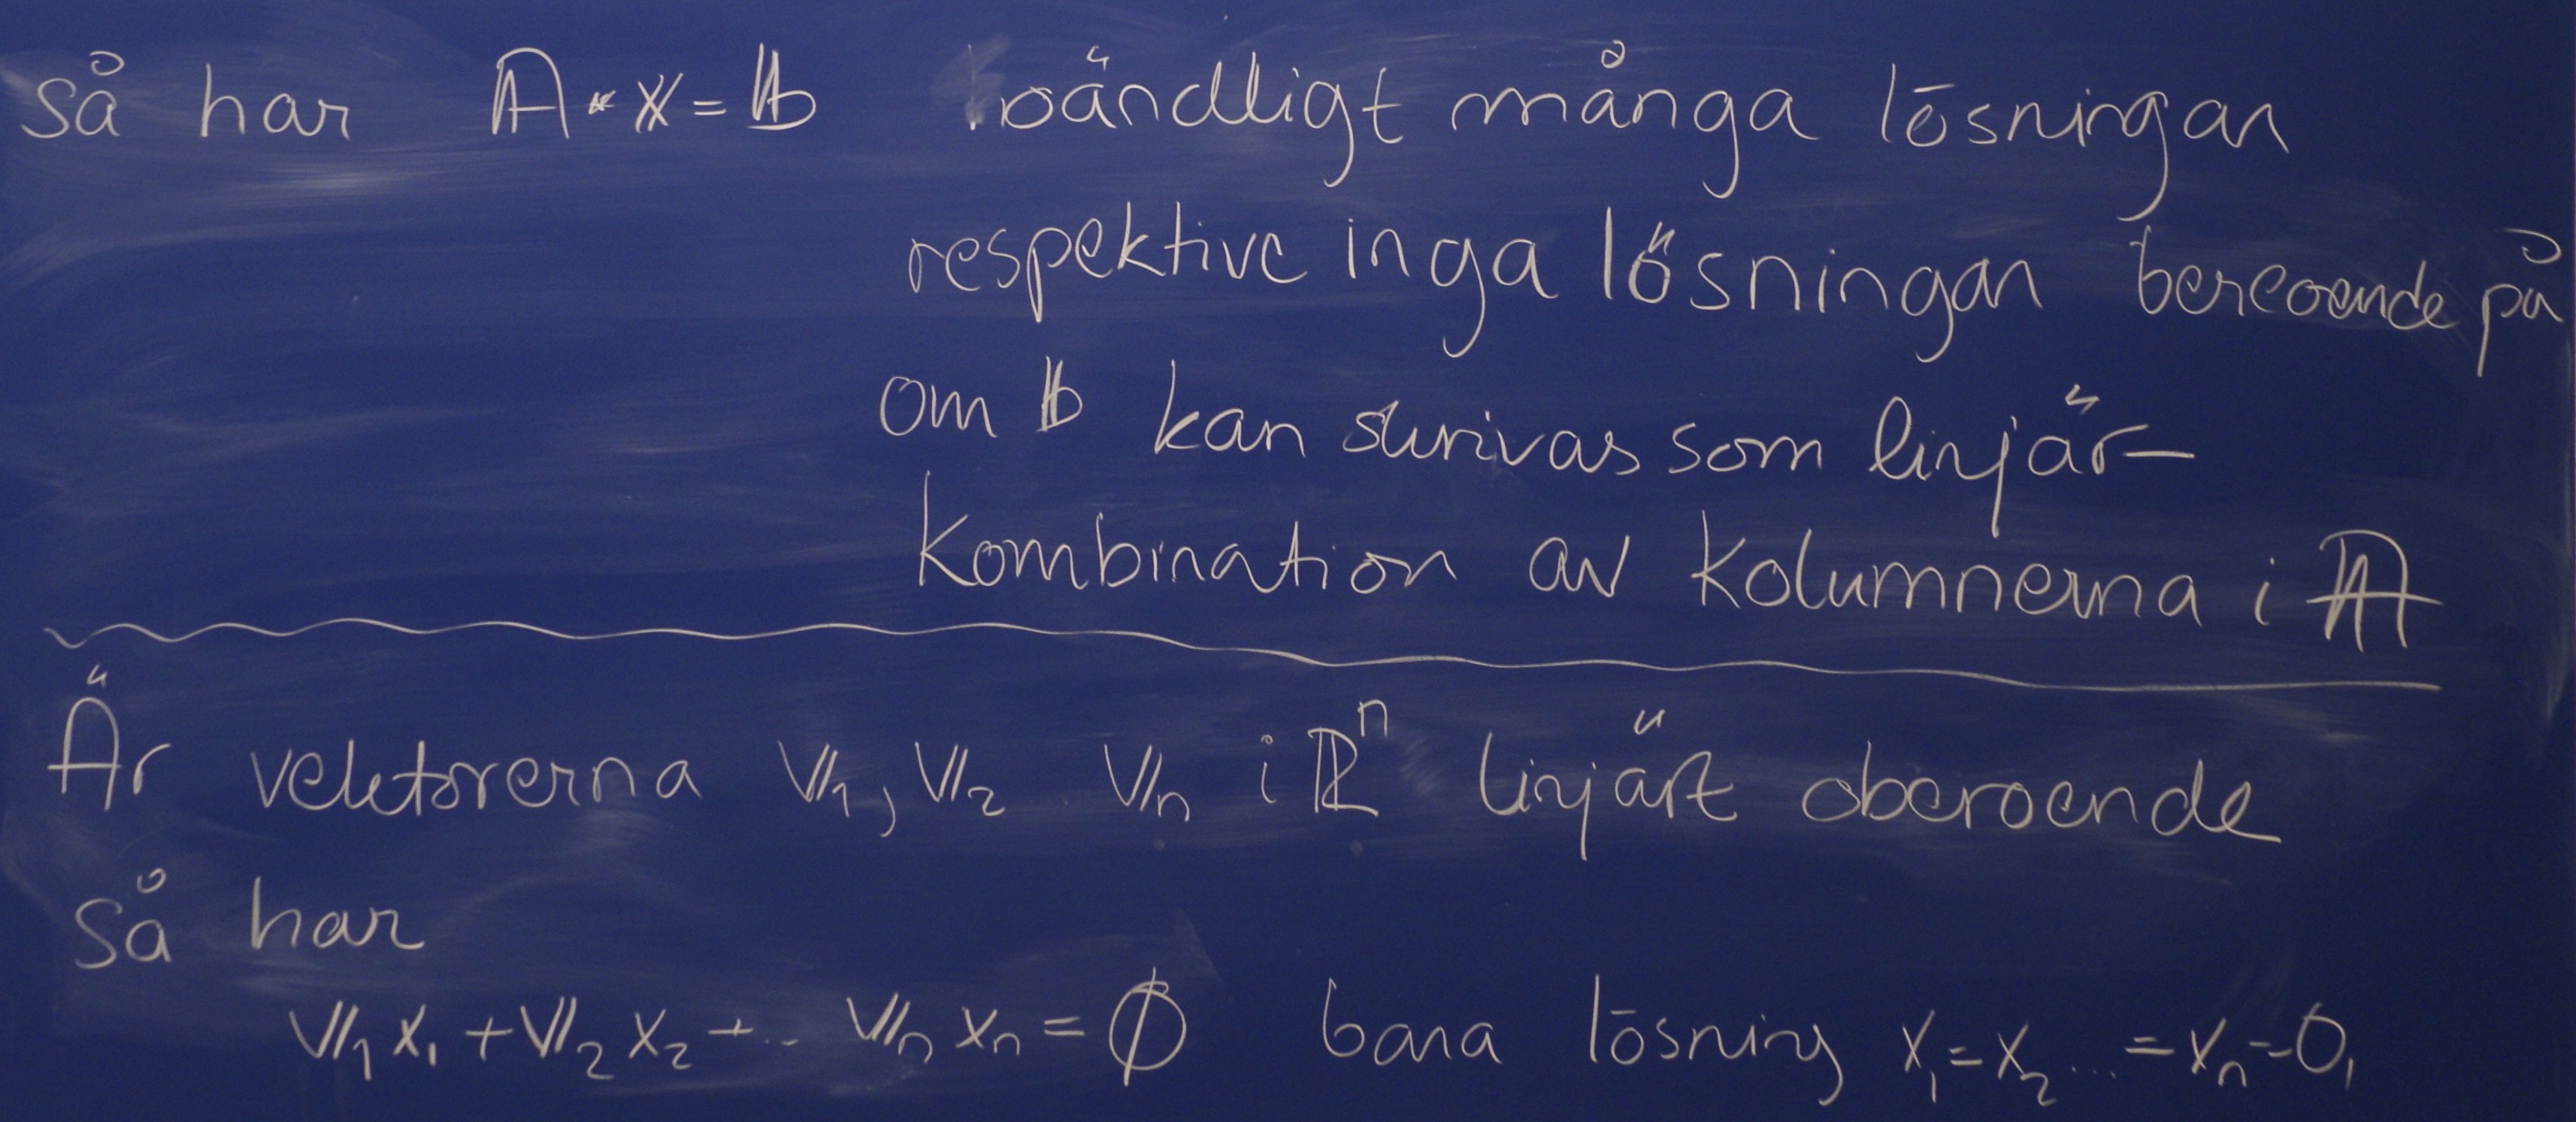 så har A · x = b oändligt många lösningar
respektive inga lösningar bereoende på
om b kan skrivas som linjär-
kombination av kolumnerna i A
Är vektorerna v₁, v₂ vₙ i ℝⁿ linjärt oberoende
så har
v₁x₁ + v₂x₂ + .. vₙxₙ = 0 bara lösning x₁ = x₂ ... = xₙ = 0,